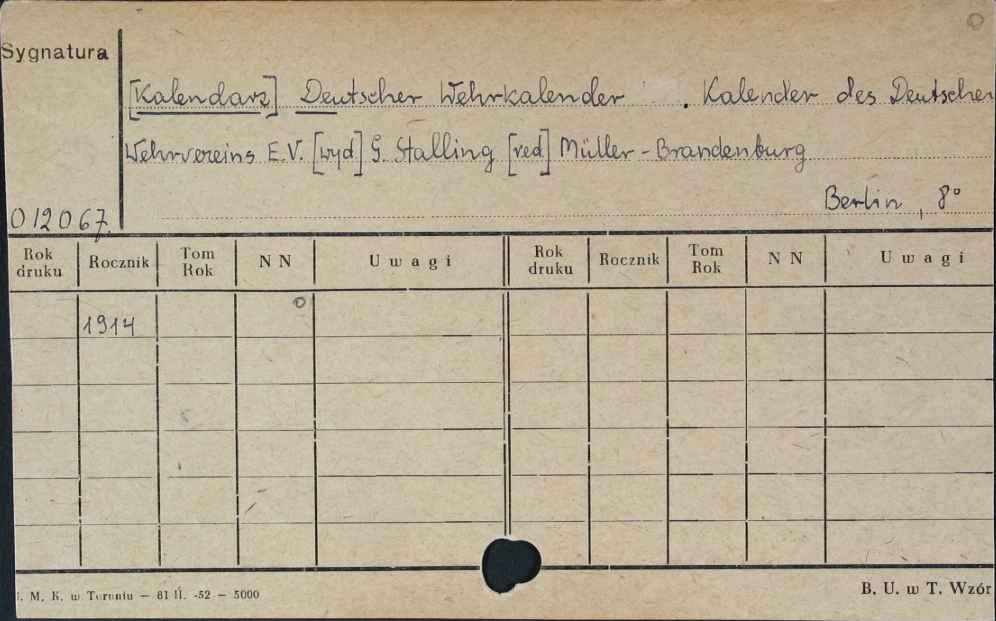 Sygnatura
[Kalendarz] Deutscher Wehrkalender . Kalender des Deutscher
Wehrvereins E.V. [wyd] G. Stalling [red] Müller-Brandenburg
Berlin, 8°
012067.
Rok druku Rocznik Tom Rok NN Uwagi Rok druku Rocznik Tom Rok NN Uwagi
1914
M. K. w Toruniu — 81 II. -52 — 5000
B. U. w T. Wzór